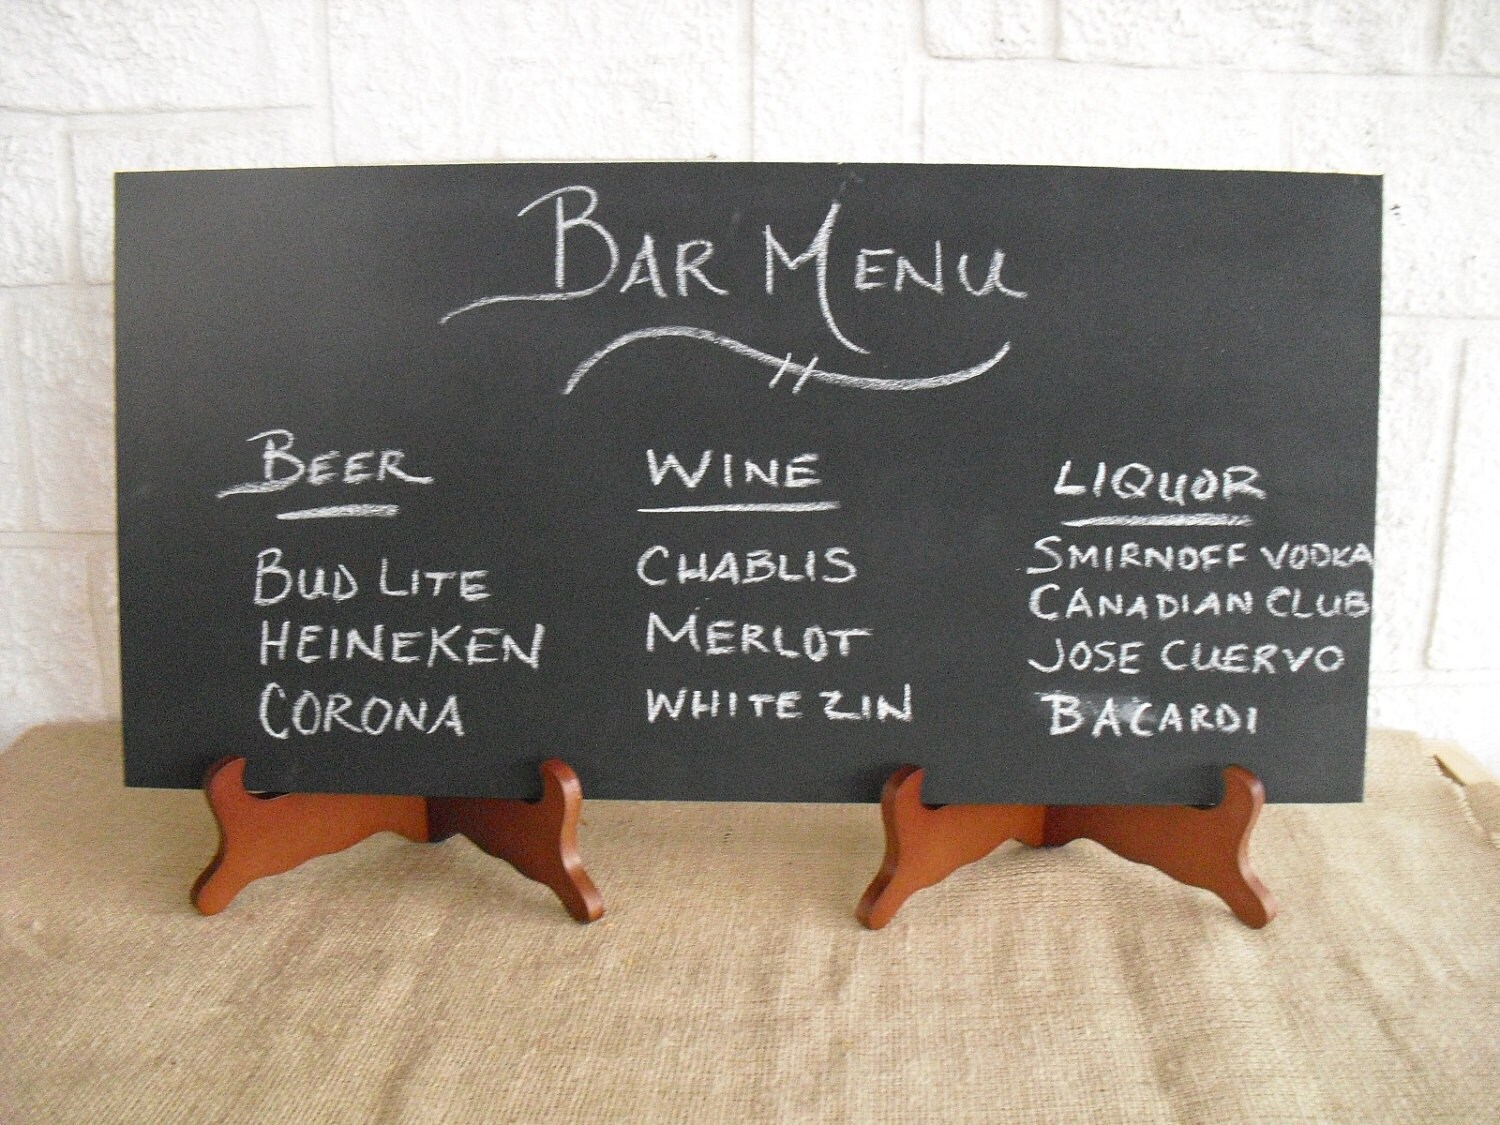 BAR MENU
BEER
BUD LITE
HEINEKEN
CORONA
WINE
CHABLIS
MERLOT
WHITE ZIN
LIQUOR
SMIRNOFF VODKA
CANADIAN CLUB
JOSE CUERVO
BACARDI